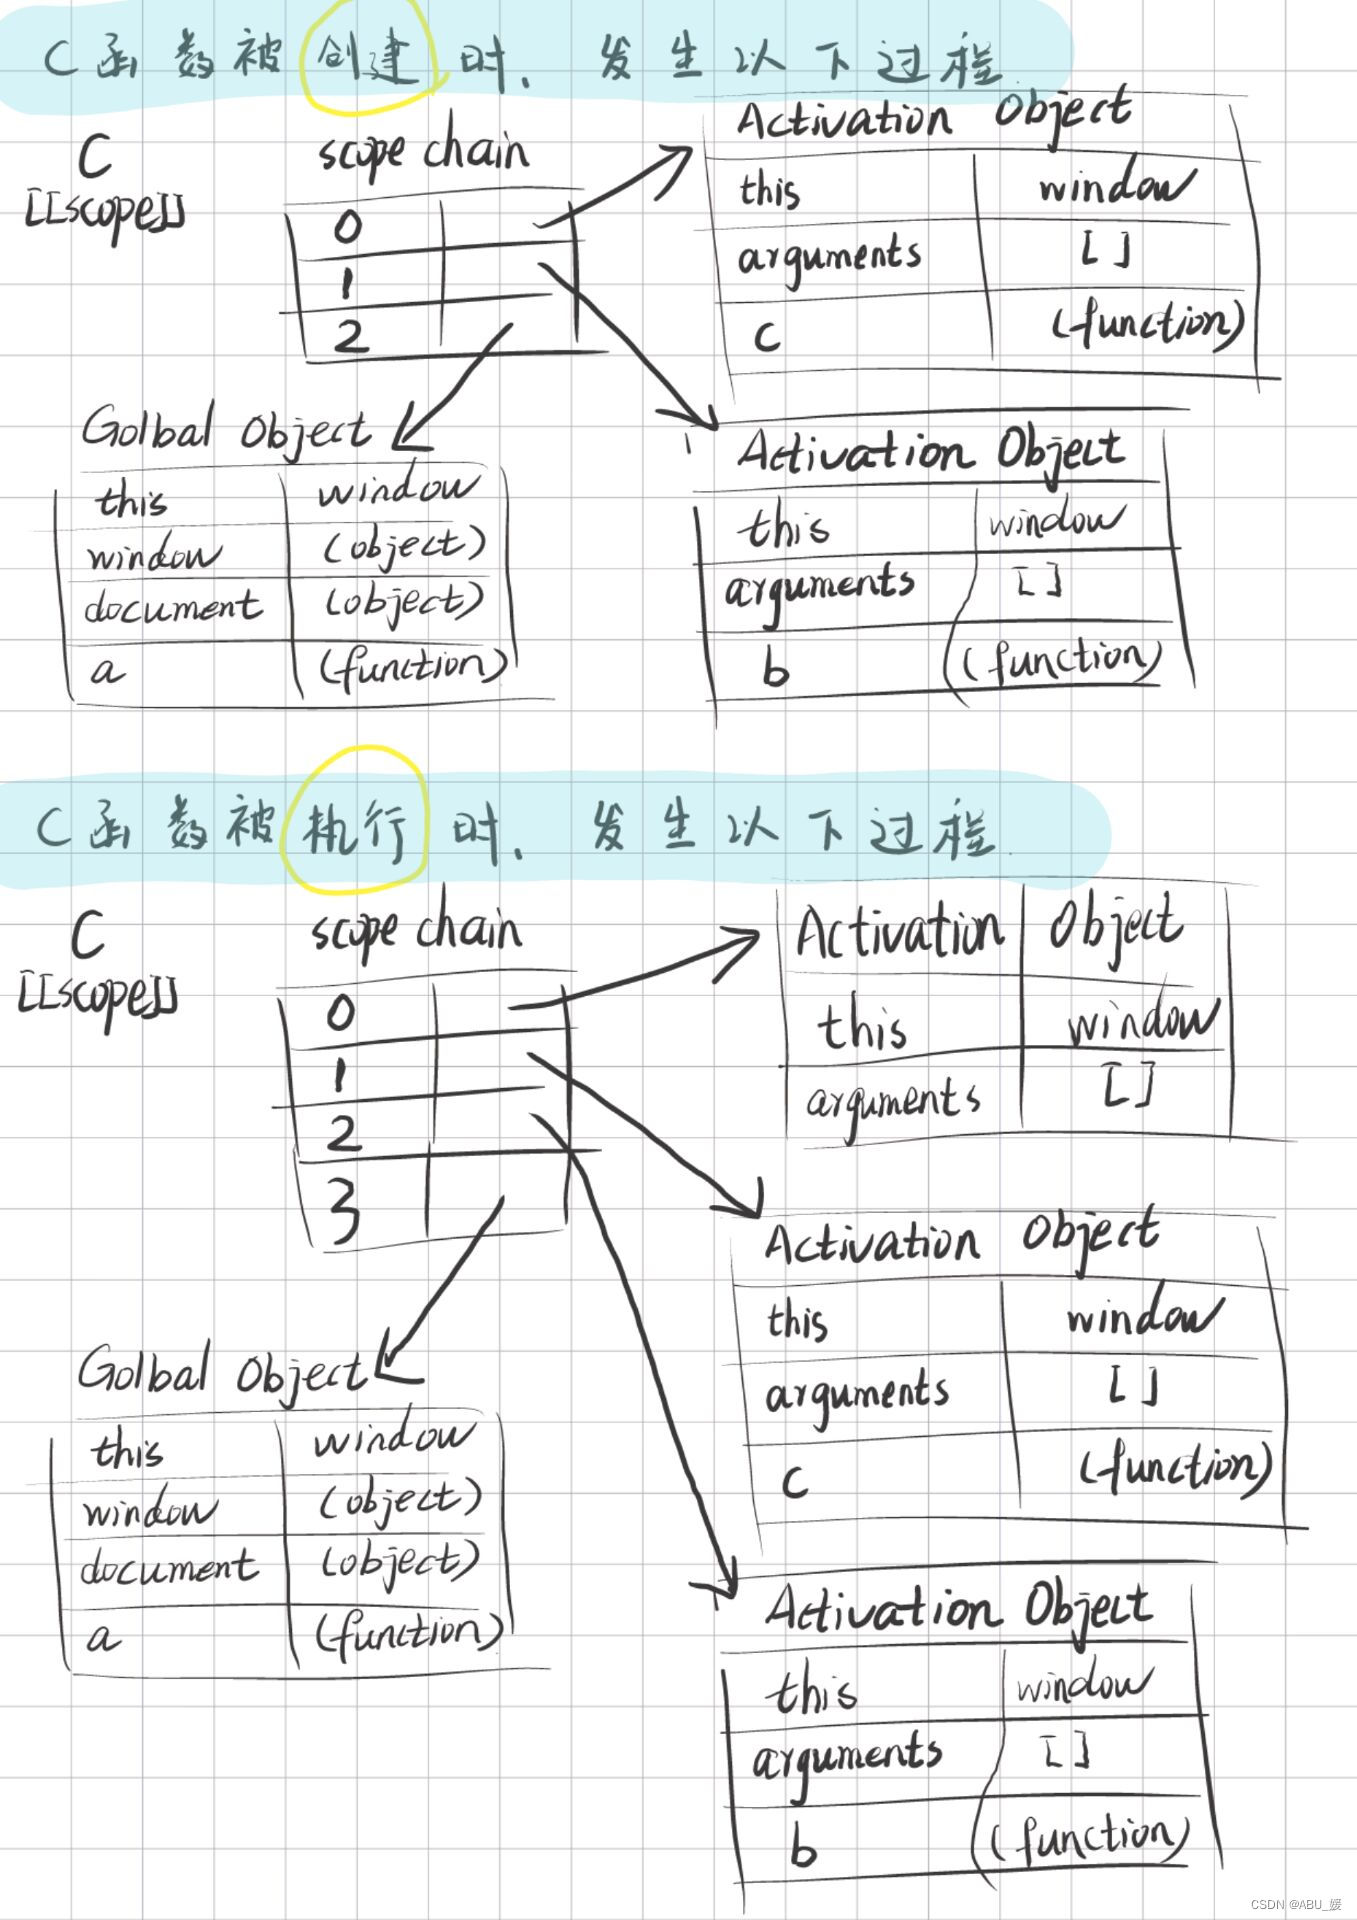 C函数被创建时，发生以下过程.
C
[[scope]]
scope chain
0
1
2
Activation Object
this window
arguments []
c (function)
Golbal Object
this window
window (object)
document (object)
a (function)
Activation Object
this window
arguments []
b (function)
C函数被执行时，发生以下过程.
C
[[scope]]
scope chain
0
1
2
3
Activation Object
this window
arguments []
Activation Object
this window
arguments []
c (function)
Golbal Object
this window
window (object)
document (object)
a (function)
Activation Object
this window
arguments []
b (function)
CSDN @ABU_媛